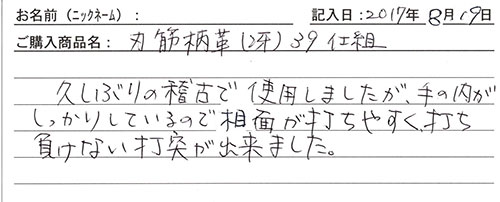 お名前（ﾆｯｸﾈｰﾑ）：
記入日：2017年 8月19日
ご購入商品名：丸筋柄革(2枚)39仕組
久しぶりの稽古で使用しましたが、手の内が
しっかりしているので相面が打ちやすく、打ち
負けない打突が出来ました。